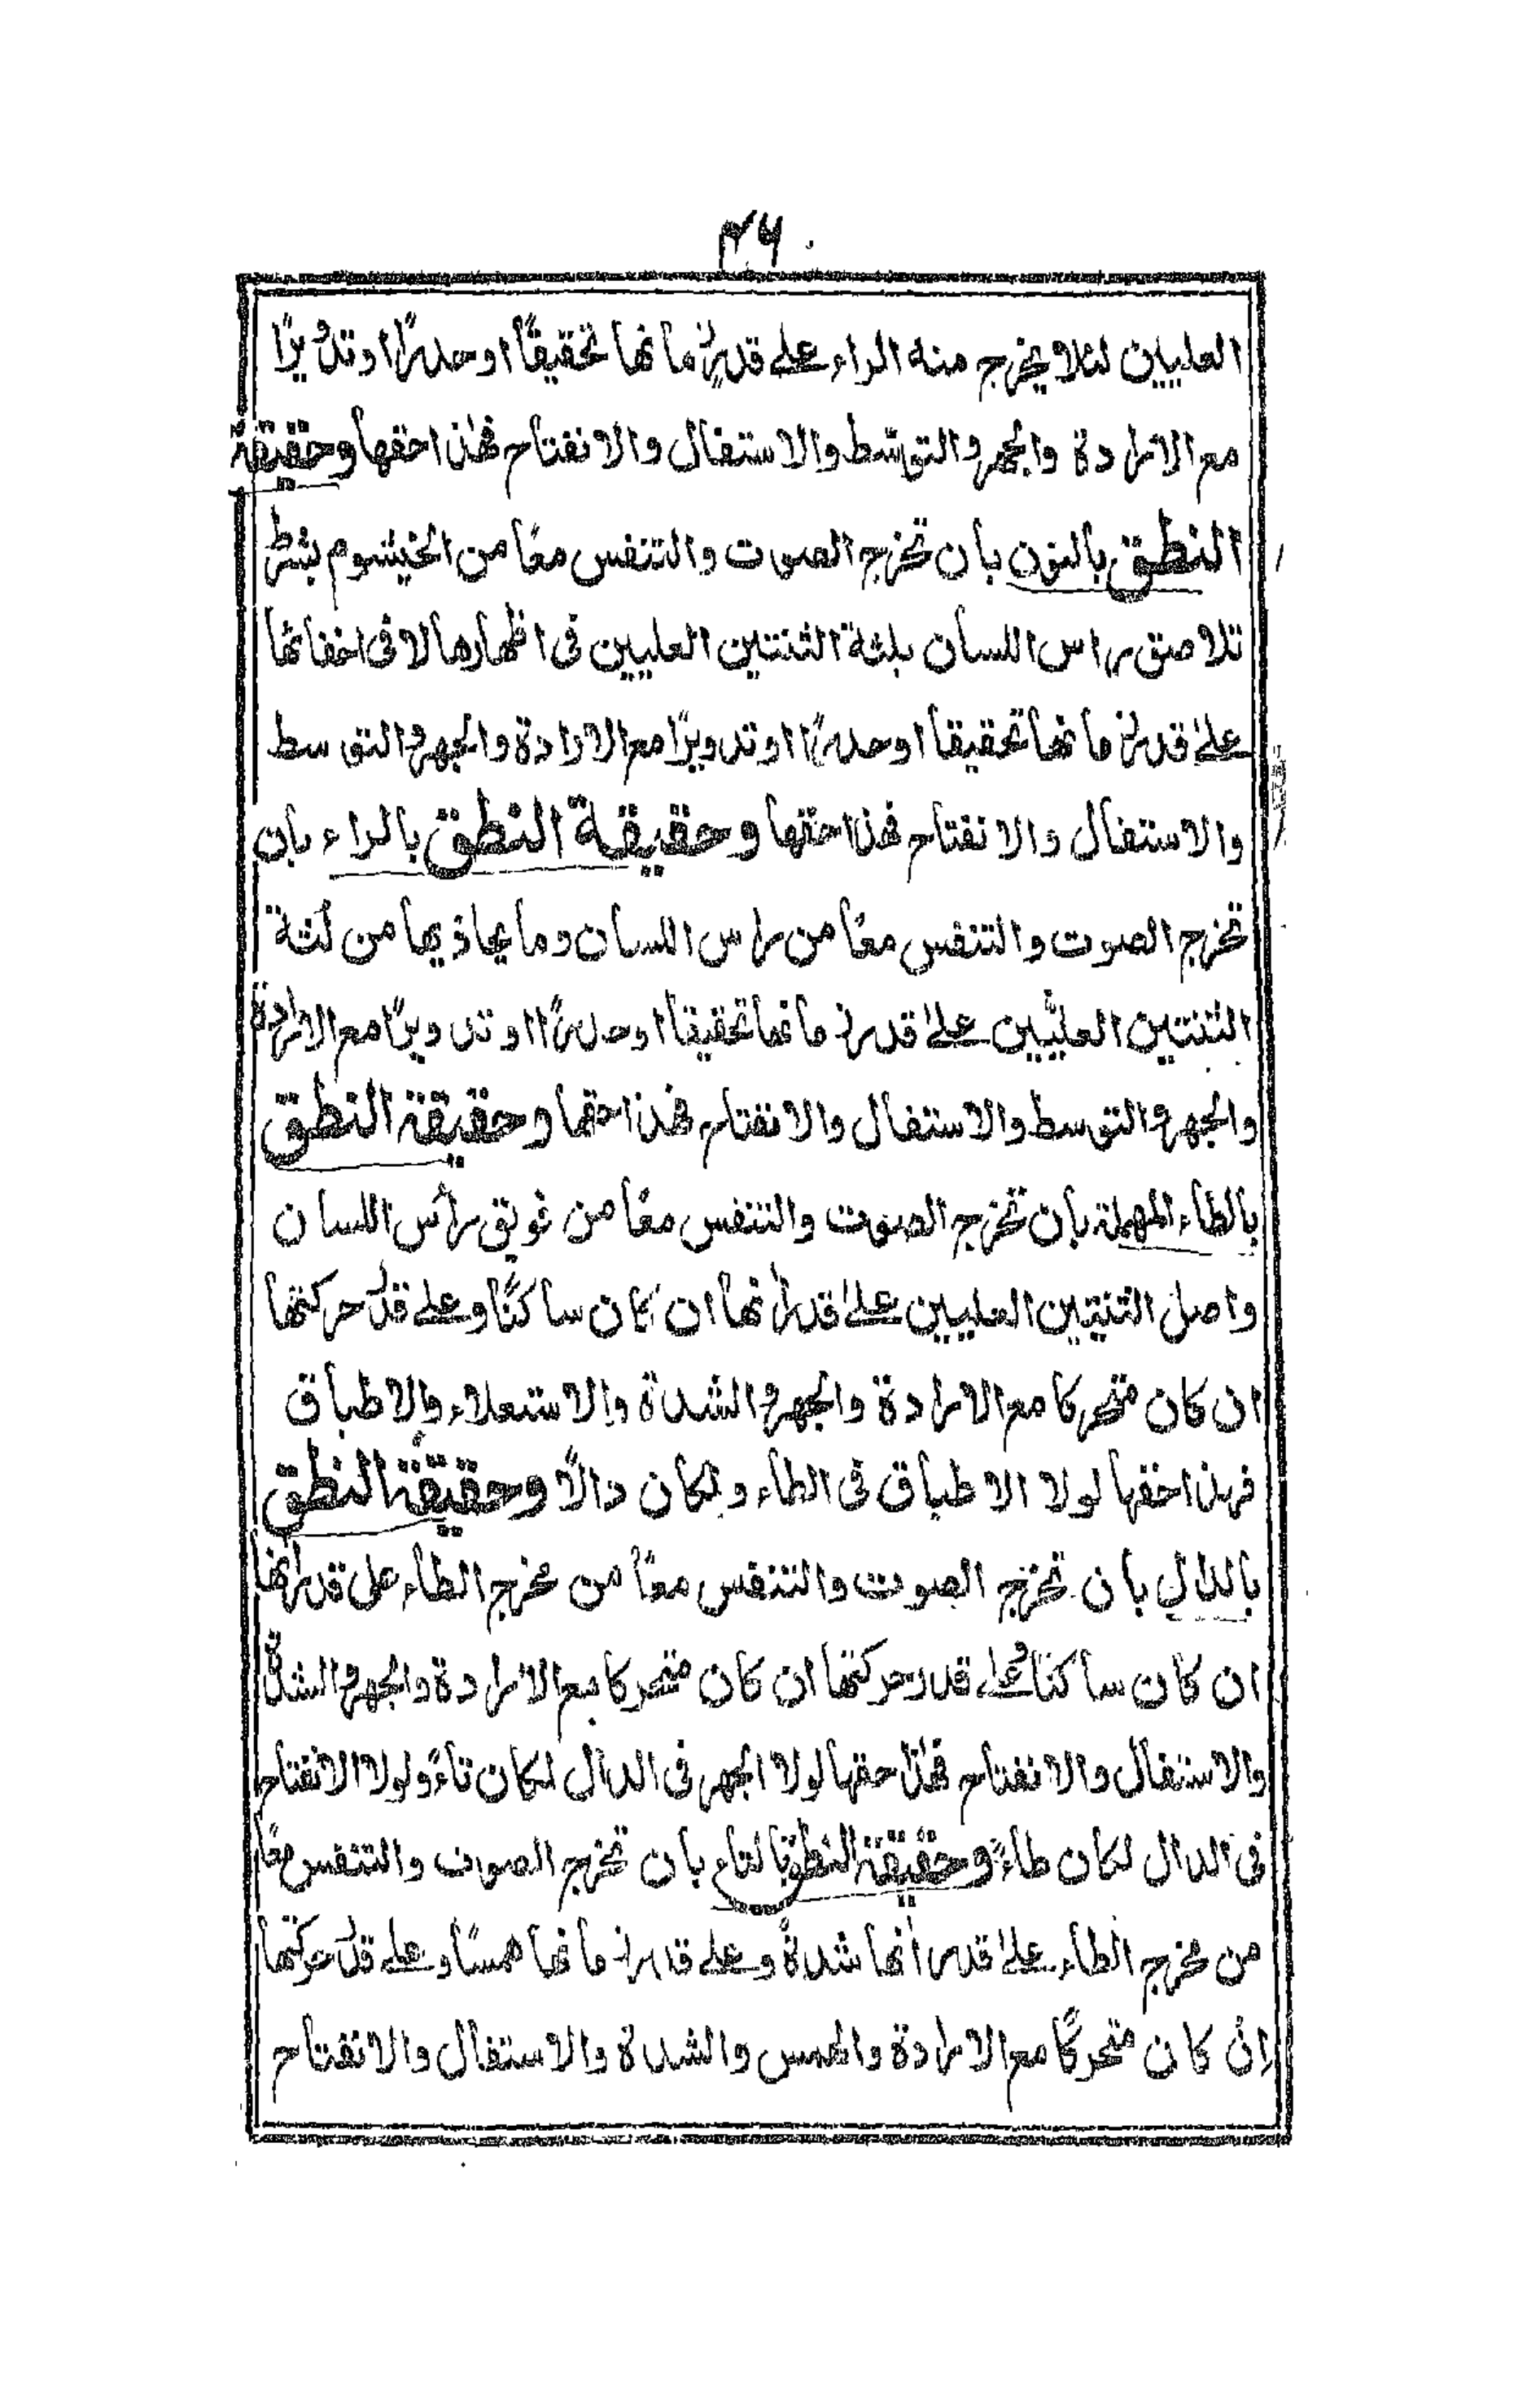 ٤٦
العليين لئلا يخرج منه الراء على قدر زمانها تحقيقًا او حدرًا او تدويرًا
مع الارادة والجهر والتوسّط والاستفال والانفتاح فهذا حقها وحقيقة
النطق بالنون بان تخرج الصوت والتنفس معًا من الخيشوم بشرط
تلاصق راس اللسان بلثة الثنتين العليين فى اظهارها لا فى اخفائها
على قدر زمانها تحقيقا او حدرًا او تدويرًا مع الارادة والجهر والتوسط
والاستفال والانفتاح فهذا حقها وحقيقة النطق بالراء بان
تخرج الصوت والتنفس معًا من راس اللسان وما يحاذيها من لثة
الثنتين العليّين على قدر زمانها تحقيقا او حدرًا او تدويرًا مع الارادة
والجهر والتوسط والاستفال والانفتاح فهذا حقها وحقيقة النطق
بالطاء المهملة بان تخرج الصوت والتنفس معًا من فويق رأس اللسان
واصل الثنيتين العليين على قدر انها ان كان ساكنًا وعلى قدر حركتها
ان كان متحركا مع الارادة والجهر والشدة والاستعلاء والاطباق
فهذا حقها لولا الاطباق فى الطاء ولكان دالًا وحقيقة النطق
بالدال بان تخرج الصوت والتنفس معًا من مخرج الطاء على قدر انها
ان كان ساكنا وعلى قدر حركتها ان كان متحركا مع الارادة والجهر والشدة
والاستفال والانفتاح فهذا حقها لولا الجهر فى الدال لكان تاءً ولولا الانفتاح
فى الدال لكان طاءً وحقيقة النطق بالتاء بان تخرج الصوت والتنفس معًا
من مخرج الطاء على قدر انها شدة وعلى قدر زمانها همسًا وعلى قدر حركتها
ان كان متحركًا مع الارادة والهمس والشدة والاستفال والانفتاح